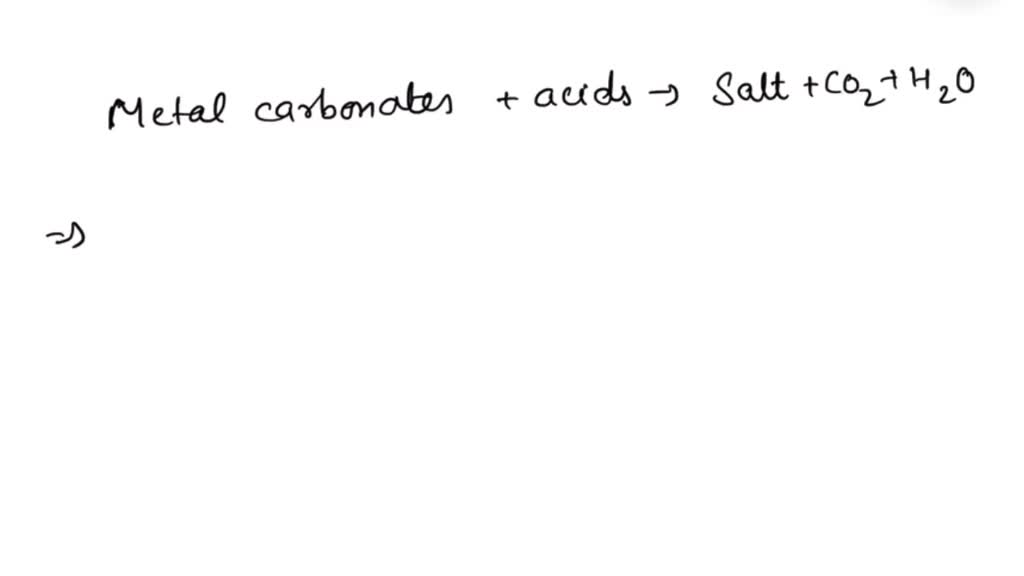 Metal carbonates + acids → Salt + CO₂ + H₂O
⇒